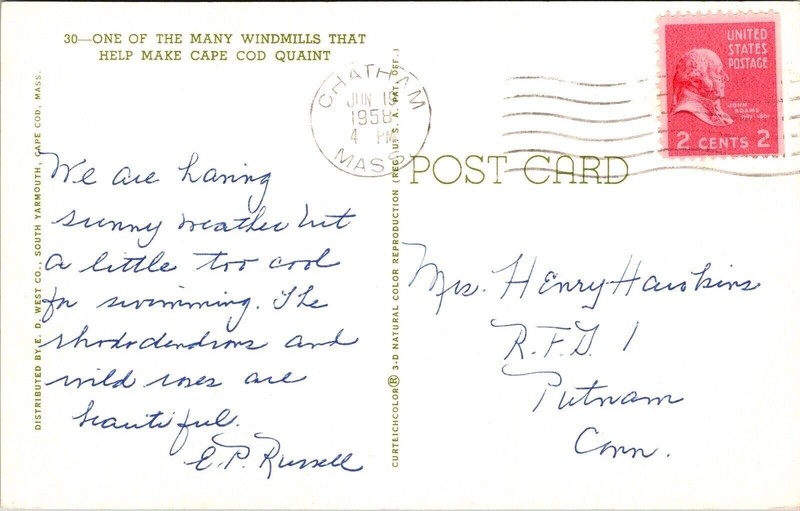 30—ONE OF THE MANY WINDMILLS THAT
HELP MAKE CAPE COD QUAINT
CHATHAM
JUN 19
1958
4 PM
MASS.
UNITED
STATES
POSTAGE
JOHN
ADAMS
2 CENTS 2
POST CARD
We are having
sunny weather but
a little too cool
for swimming. The
rhododendrons and
wild roses are
beautiful.
E.P. Russell
Mrs. Henry Hawkins
R.F.D. 1
Putnam
Conn.
DISTRIBUTED BY E. D. WEST CO., SOUTH YARMOUTH, CAPE COD, MASS.
CURTEICHCOLOR® 3-D NATURAL COLOR REPRODUCTION (REG. U. S. A. PAT. OFF.)